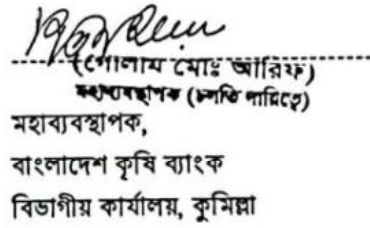 (গোলাম মোঃ আরিফ)
মহাব্যবস্থাপক (চলতি দায়িত্বে)
মহাব্যবস্থাপক,
বাংলাদেশ কৃষি ব্যাংক
বিভাগীয় কার্যালয়, কুমিল্লা